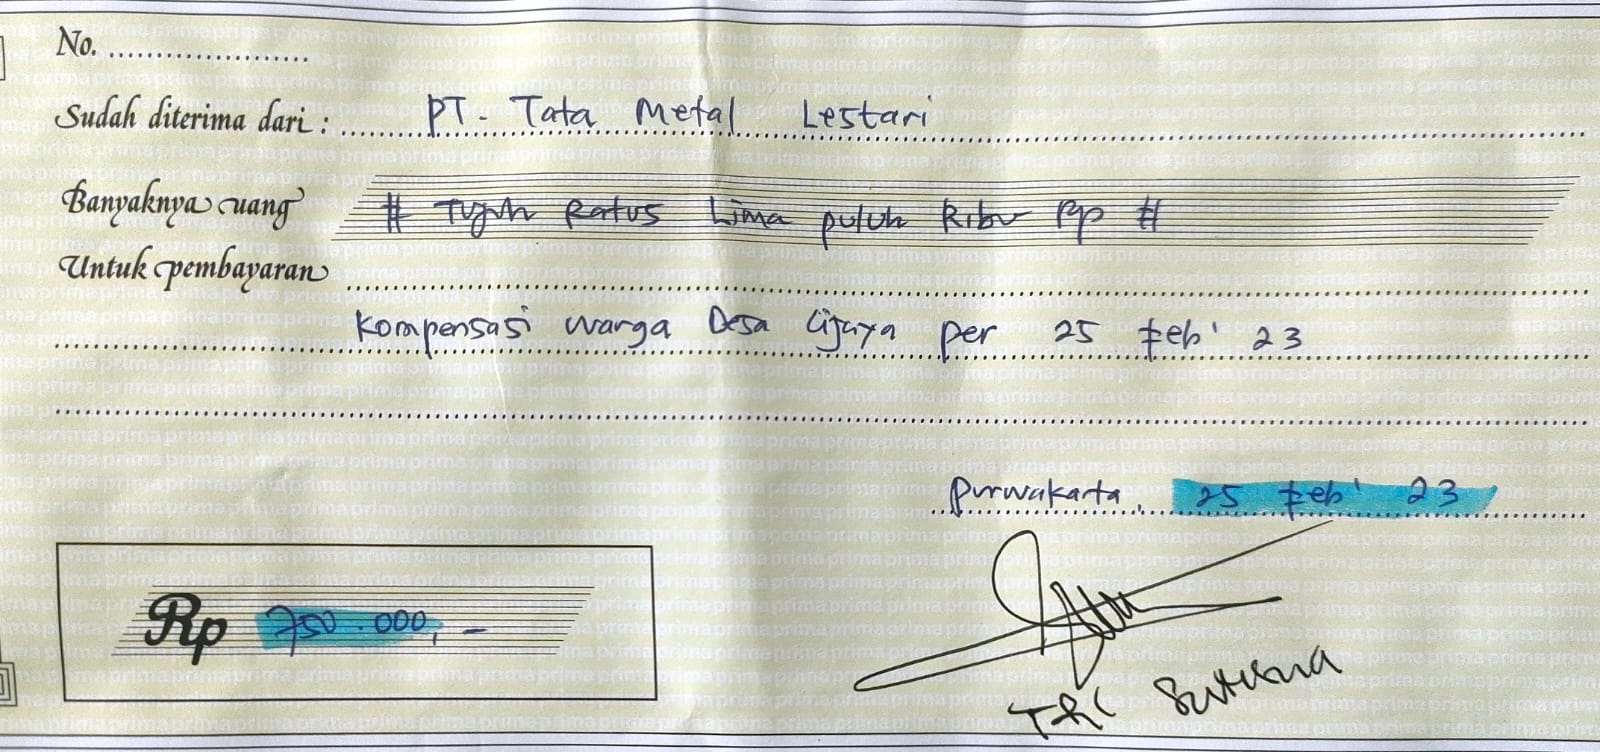 No. ....................
Sudah diterima dari : PT. Tata Metal Lestari
Banyaknya uang # Tujuh Ratus Lima puluh Ribu Rp #
Untuk pembayaran
Kompensasi warga Desa Cijaya per 25 Feb' 23
Purwakarta, 25 Feb' 23
Rp 750.000,-
Sutisna